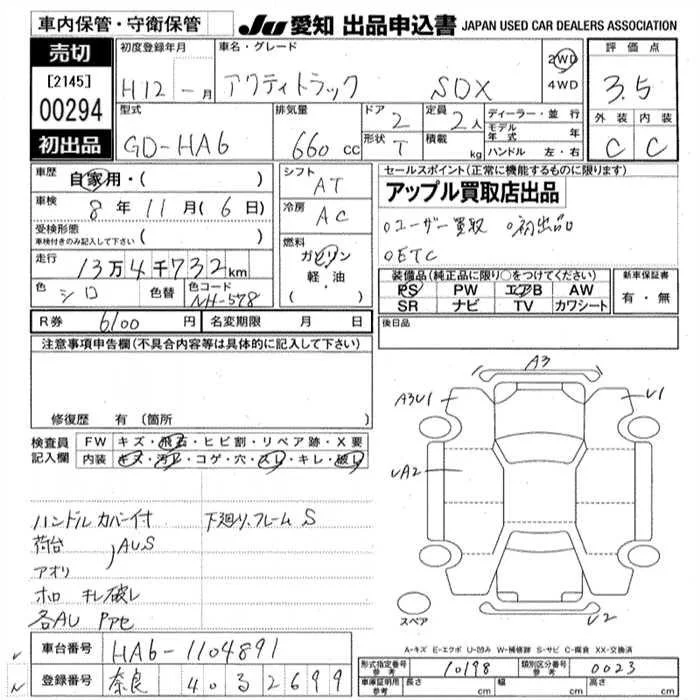 車内保管・守衛保管
JU 愛知 出品申込書 JAPAN USED CAR DEALERS ASSOCIATION
売切
[2145]
00294
初出品
初度登録年月
H12 - 月
車名・グレード
アクティトラック SDX
2WD
4WD
評価点
3.5
外装 内装
C C
型式
GD-HA6
排気量
660 cc
ドア 2
形状 T
定員 2人
積載 kg
ディーラー・並行
モデル年式 年
ハンドル 左・右
車歴 自家用・( )
車検 8年11月(6日)
受検形態
車検付きのみ記入して下さい ( )
走行 13万4千732km
色 シロ 色替 色コード NH-578
シフト AT
冷房 AC
燃料
ガソリン
軽・油
( )
セールスポイント(正常に機能するものに限ります)
アップル買取店出品
○ユーザー買取 ○初出品
○ETC
装備品(純正品に限り○をつけてください)
PS PW エアB AW
SR ナビ TV カワシート
新車保証書
有・無
R券 6100円 名変期限 月 日
後日品
注意事項申告欄(不具合内容等は具体的に記入して下さい)
修復歴 有 (箇所
検査員記入欄
FW キズ・飛石・ヒビ割・リペア跡・X要
内装 キズ・汚れ・コゲ・穴・スレ・キレ・破れ
ハンドルカバー付 下廻り、フレームS
荷台
アオリ AUS
ホロ キレ破レ
各AU Pアセ
A3
A3U1
U1
UA2
U2
スペア
A-キズ E-エクボ U-凹み W-補修跡 S-サビ C-腐食 XX-交換済
車台番号 HA6-1104891
登録番号 奈良 40 さ 2699
形式指定番号 参考 10198 類別区分番号 参考 0023
車庫証明用 参考 長さ cm 幅 cm 高さ cm